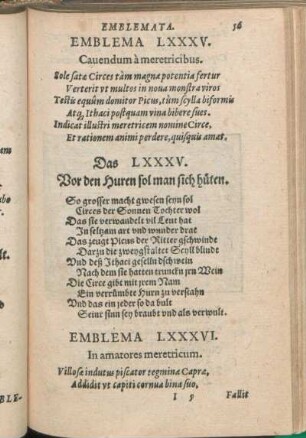 EMBLEMATA. 56
EMBLEMA LXXXV.
Cauendum à meretricibus.
Sole satæ Circes tàm magna potentia fertur
Verterit vt multos in noua monstra viros
Testis equûm domitor Picus, tùm scylla biformis
Atq, Ithaci postquam vina bibere sues.
Indicat illustri meretricem nomine Circe,
Et rationem animi perdere, quisquis amat.
Das LXXXV.
Vor den Huren sol man sich hüten.
So grosser macht gwesen seyn sol
Circes der Sonnen Tochter wol
Das sie verwandelt vil Leut hat
In seltzam art vnd wunder drat
Das zeugt Picus der Ritter gschwinde
Darzu die zweygstaltet Scyll blinde
Vnd deß Ithaci geselln dschwein
Nach dem sie hatten trunckn jrn Wein
Die Circe gibt mit jrem Nam
Ein verrümbte Hurn zu verstahn
Vnd das ein jeder so da bult
Seinr sinn sey braubt vnd als verwult.
EMBLEMA LXXXVI.
In amatores meretricum.
Villosæ indutus piscator tegmina Capræ,
Addidit vt capiti cornua bina suo,
I y Fallit
BLE-